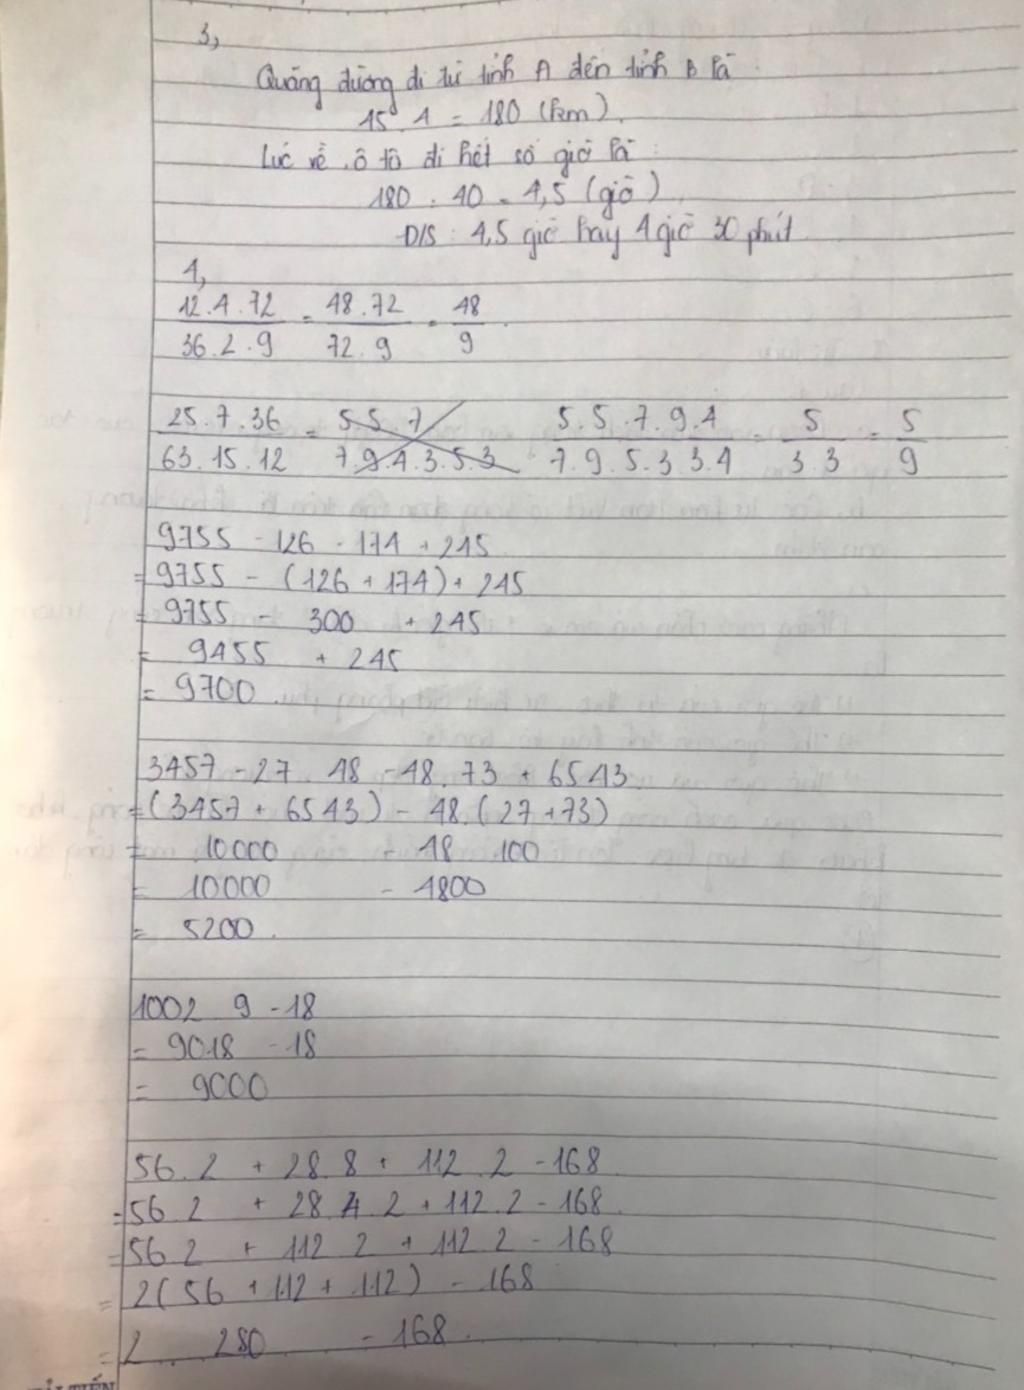 3,
Quãng đường đi từ tỉnh A đến tỉnh B là :
45 . 4 = 180 (km).
Lúc về ô tô đi hết số giờ là :
180 : 40 = 4,5 (giờ)
Đ/S : 4,5 giờ hay 4 giờ 30 phút
4,
12.4.72 / 36.2.9 = 48.72 / 72.9 = 48 / 9 .
25.7.36 / 63.15.12 = 5.5.7 / 7.9.4.3.5.3 5.5.7.9.4 / 7.9.5.3.3.4 = 5 / 3.3 = 5 / 9
9755 - 126 - 174 + 245
= 9755 - (126 + 174) + 245
= 9755 - 300 + 245
= 9455 + 245
= 9700 .
3457 - 27 . 48 - 48 . 73 + 6543
= (3457 + 6543) - 48.(27 + 73)
= 10000 - 48 . 100
= 10000 - 4800
= 5200 .
1002 . 9 - 18
= 9018 - 18
= 9000
56 . 2 + 28 . 8 + 112 . 2 - 168
= 56 . 2 + 28 . 4 . 2 + 112 . 2 - 168 .
= 56 . 2 + 112 . 2 + 112 . 2 - 168
= 2(56 + 112 + 112) - 168
= 2 . 280 - 168 .